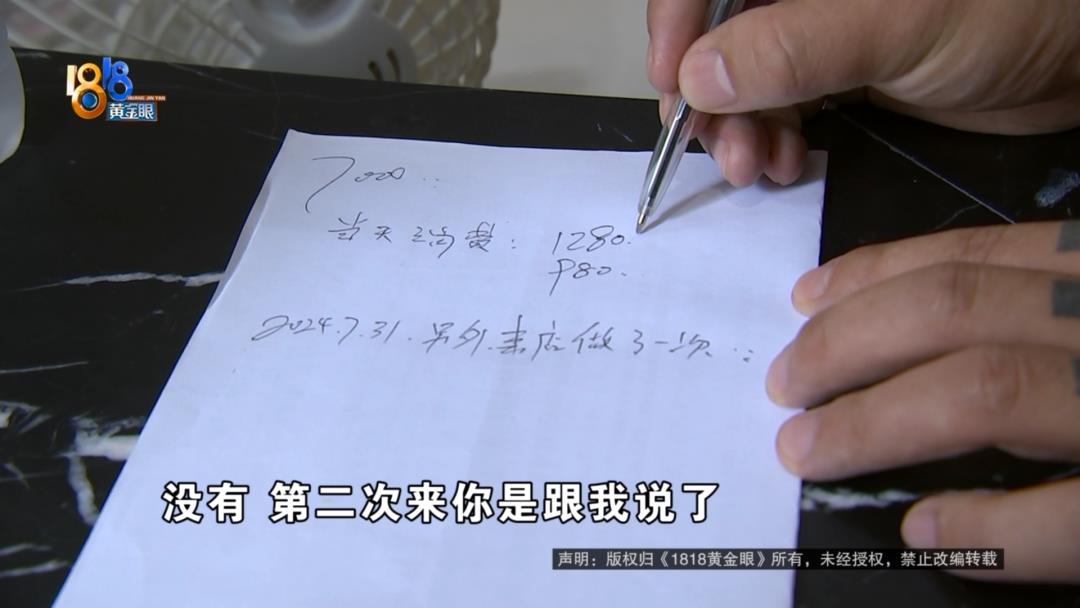 1818
HUANG JIN YAN
黄金眼
7000
当天消费：1280.
980.
2024.7.31.另外来店做了一次
没有 第二次来你是跟我说了
声明：版权归《1818黄金眼》所有，未经授权，禁止改编转载